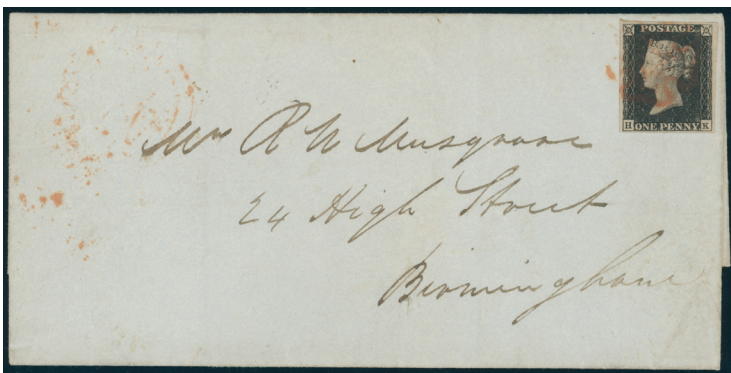 POSTAGE
H ONE PENNY K
Mr R W Musgrove
24 High Street
Birmingham